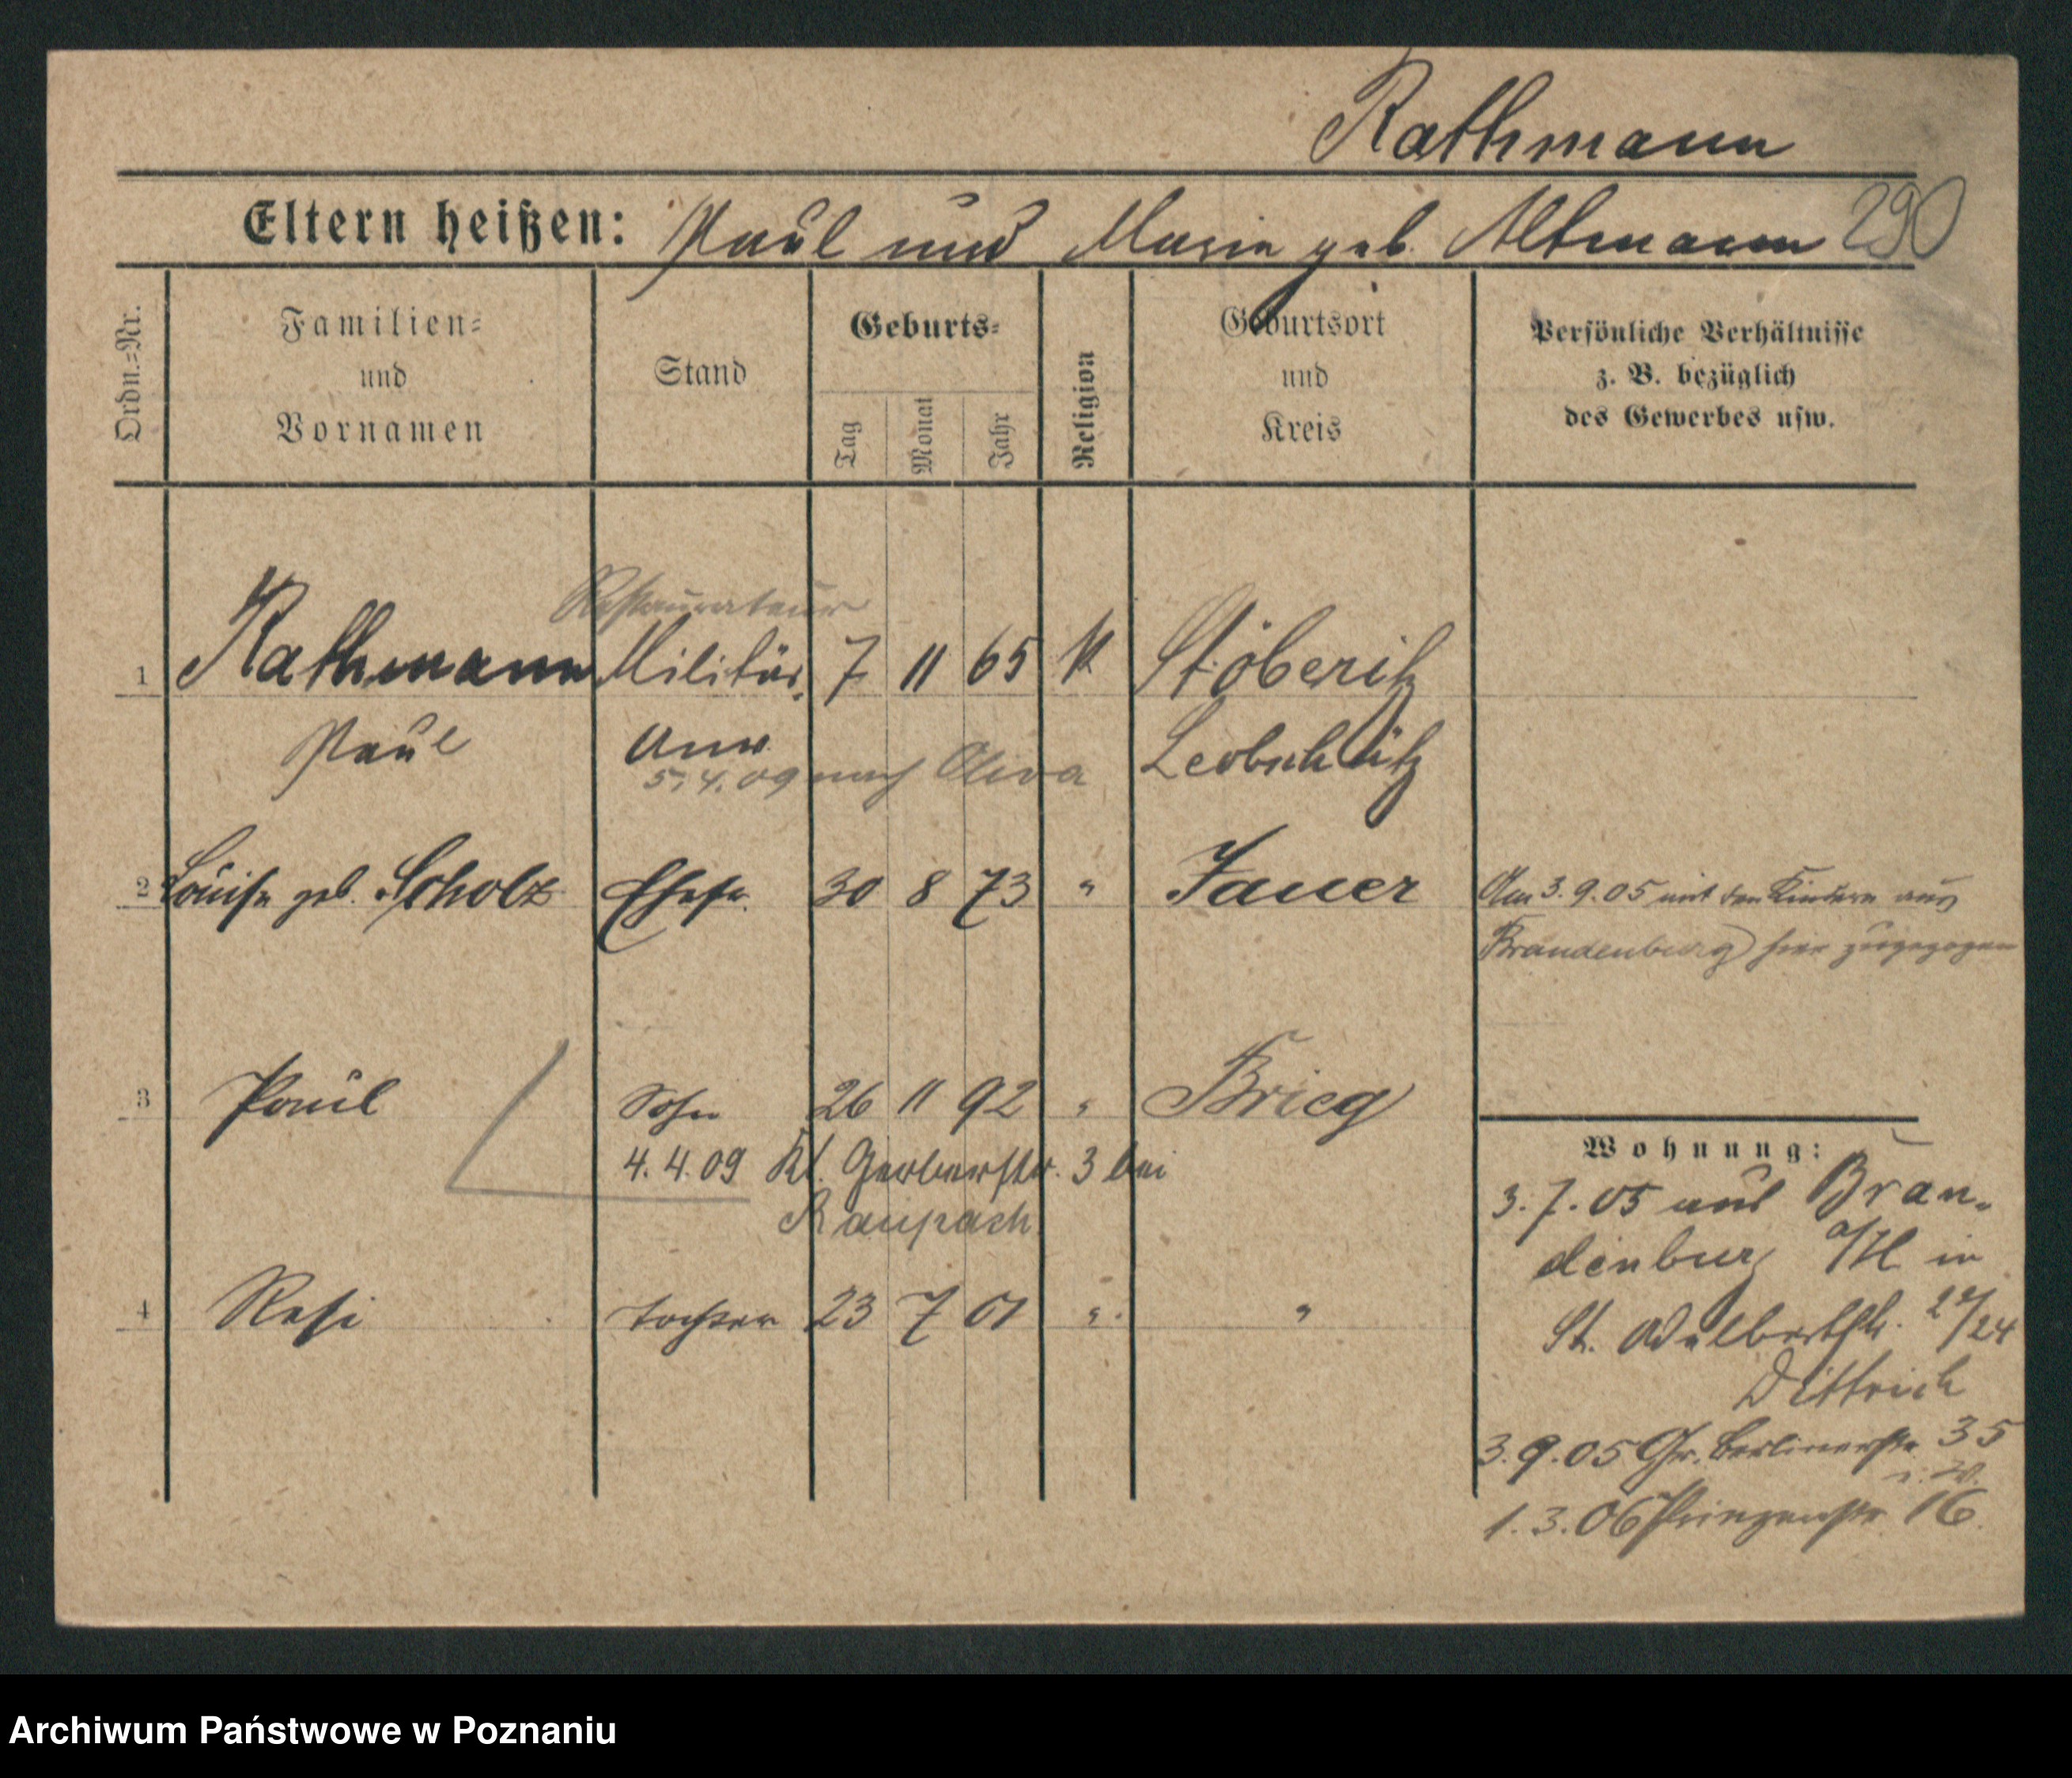 Rathmann
Eltern heißen: Paul und Marie geb. Altmann 290
Ordn.=Nr.
Familien=
und
Vornamen
Stand
Geburts=
Tag
Monat
Jahr
Religion
Geburtsort
und
Kreis
Persönliche Verhältnisse
z. B. bezüglich
des Gewerbes usw.
Restaurateur
1 Rathmann Militär. 7 11 65 K Stöberitz
Paul Anw. Leobschütz
5.4.09 nach Oliva
2 Louise geb. Scholz Ehefr. 30 8 73 " Jauer
Am 3.9.05 mit den Kindern aus
Brandenburg hier zugezogen
3 Paul Sohn 26 11 92 " Brieg
4.4.09 Kl. Gerberstr. 3 bei
Raupach
4 Resi Tochter 23 7 01 " "
Wohnung:
3.7.05 aus Bran-
denburg a/H in
St. Adalbertstr. 24
Dittrich
3.9.05 Gr. Berlinerstr. 35
1.3.06 Prinzenstr. 16
Archiwum Państwowe w Poznaniu